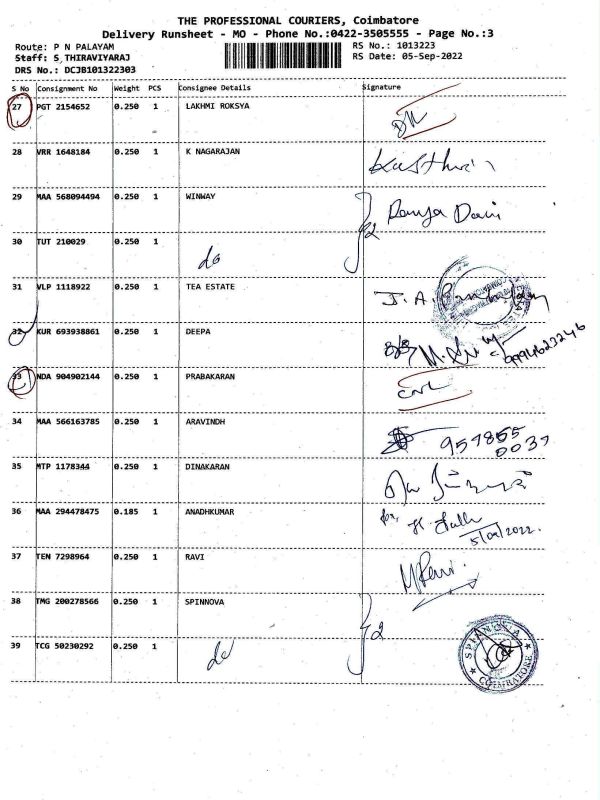 THE PROFESSIONAL COURIERS, Coimbatore
Delivery Runsheet - MO - Phone No.:0422-3505555 - Page No.:3
Route: P N PALAYAM RS No.: 1013223
Staff: S THIRAVIYARAJ RS Date: 05-Sep-2022
DRS No.: DCJB101322303
S No Consignment No Weight PCS Consignee Details Signature
27 PGT 2154652 0.250 1 LAKHMI ROKSYA
28 VRR 1648184 0.250 1 K NAGARAJAN
29 MAA 568094494 0.250 1 WINWAY Ramya Devi
30 TUT 210029 0.250 1 do 2
31 VLP 1118922 0.250 1 TEA ESTATE
32 KUR 693938861 0.250 1 DEEPA
33 NDA 904902144 0.250 1 PRABAKARAN
34 MAA 566163785 0.250 1 ARAVINDH
35 MTP 1178344 0.250 1 DINAKARAN
36 MAA 294478475 0.185 1 ANADHKUMAR
5/09/2022.
37 TEN 7298964 0.250 1 RAVI M Ravi.
38 TMG 200278566 0.250 1 SPINNOVA 2
39 TCG 50230292 0.250 1 do COIMBATORE